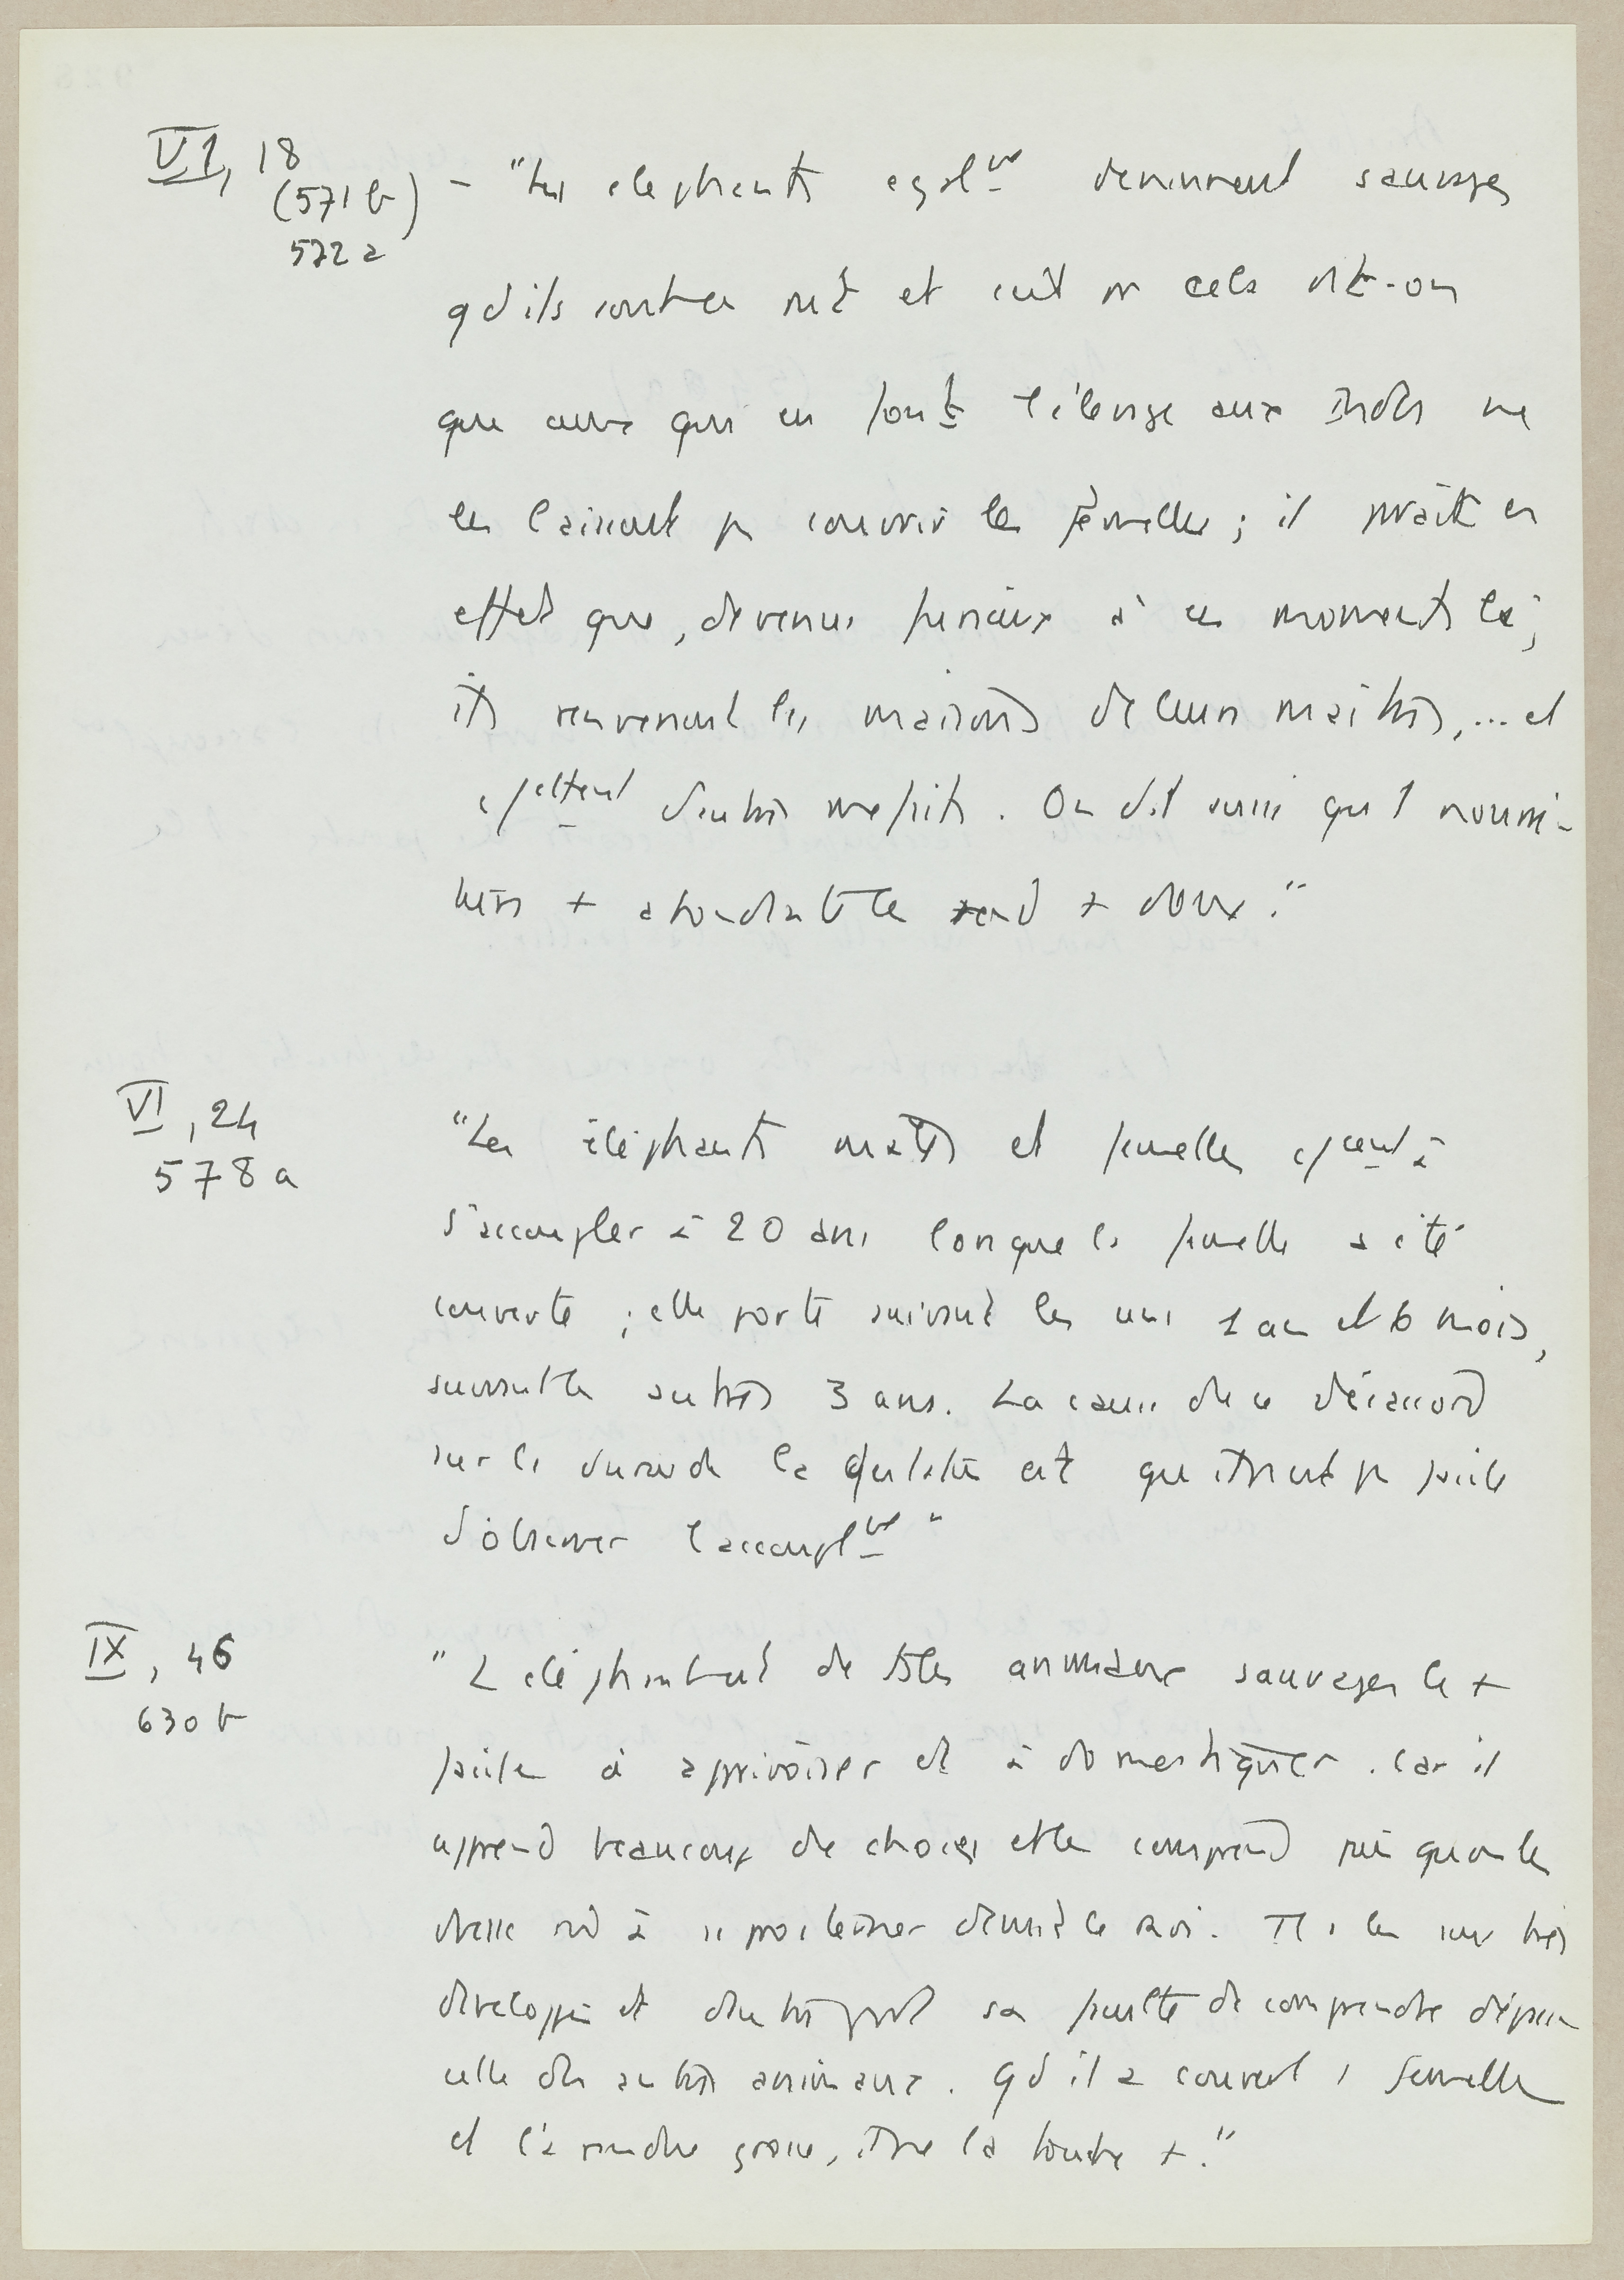 VI, 18
(571 b)
572 a
- "Les elephants egalt deviennent sauvages
qd ils sont en rut et c'est pr cela dit-on
que ceux qui en font l'élevage aux Indes ne
les laissent pas couvrir les femelles ; il paraît en
effet que, devenus furieux à ces moments là,
ils renversent les maisons de leurs maîtres, ... et
commettent d'autres mefaits. On dit aussi qu'1 nourri-
ture + abondante les rend + doux."
VI, 24
578 a
"Les éléphants mâles et femelles commencent à
s'accoupler à 20 ans lorsque la femelle a été
couverte ; elle porte suivant les uns 1 an et 6 mois,
suivant les autres 3 ans. La cause de ce désaccord
sur la durée de la gestation est qu'il n'est pas facile
d'observer l'accouplt"
IX, 46
630 b
"L'éléphant est de ts les animaux sauvages le +
facile à apprivoiser et à domestiquer. Car il
apprend beaucoup de choses et les comprend puisqu'on les
dresse même à se prosterner devant le roi. Il a les sens très
développés et d'autre part sa faculté de comprendre dépasse
celle des autres animaux. Qd il a couvert 1 femelle
et l'a rendue grosse, il ne la touche +."